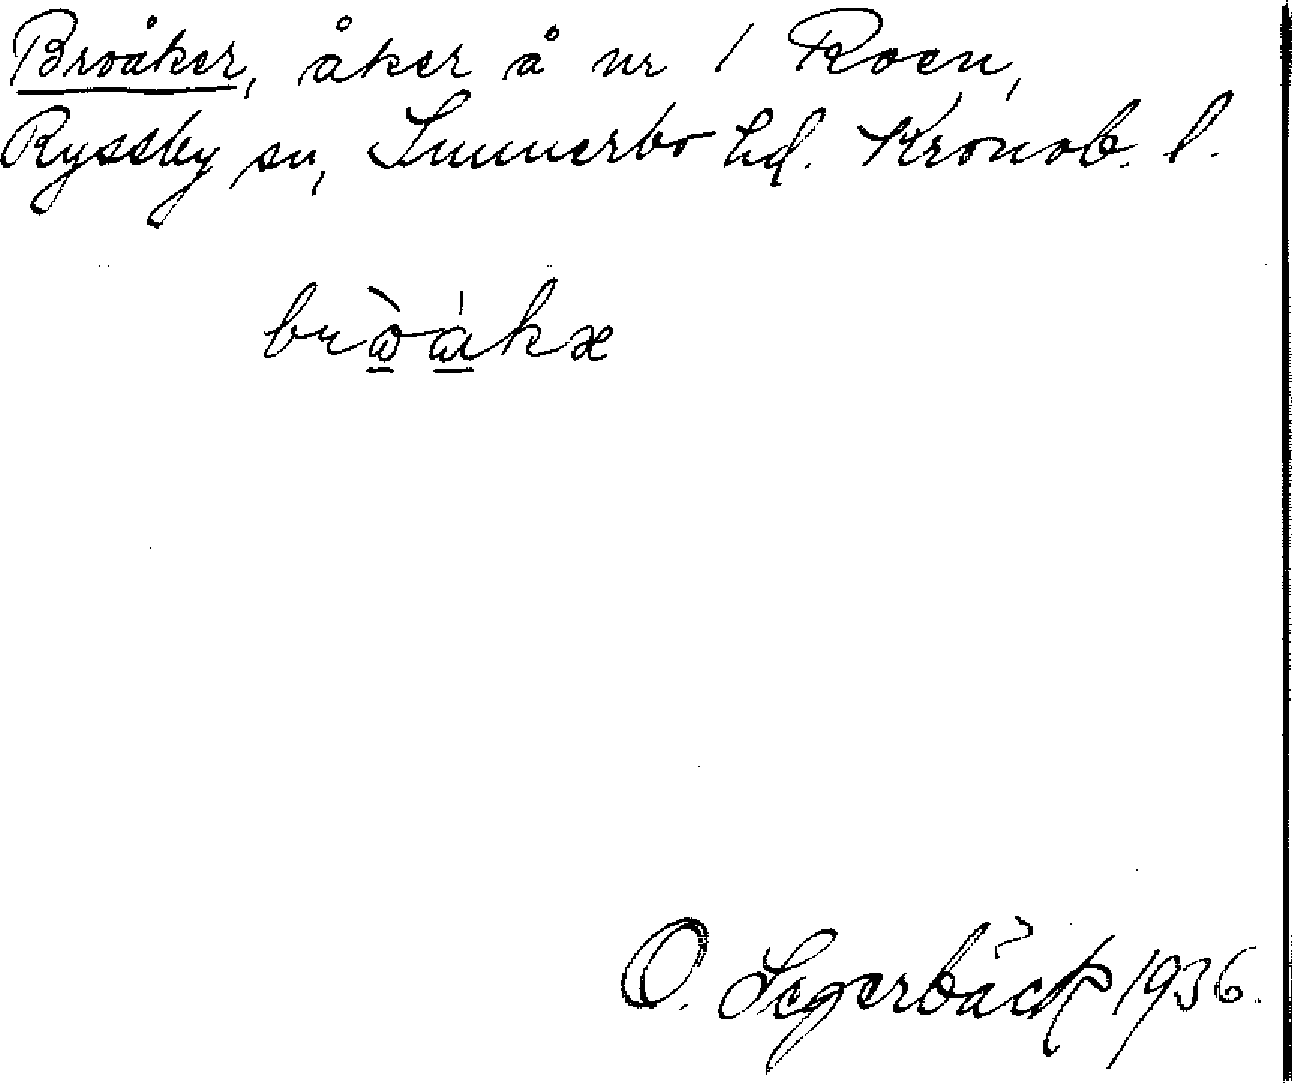 Broåker, åker å nr 1 Roen,
Ryssby sn, Sunnerbo hd. Kronob. l.
bròákæ
O. Segerbäck 1936.